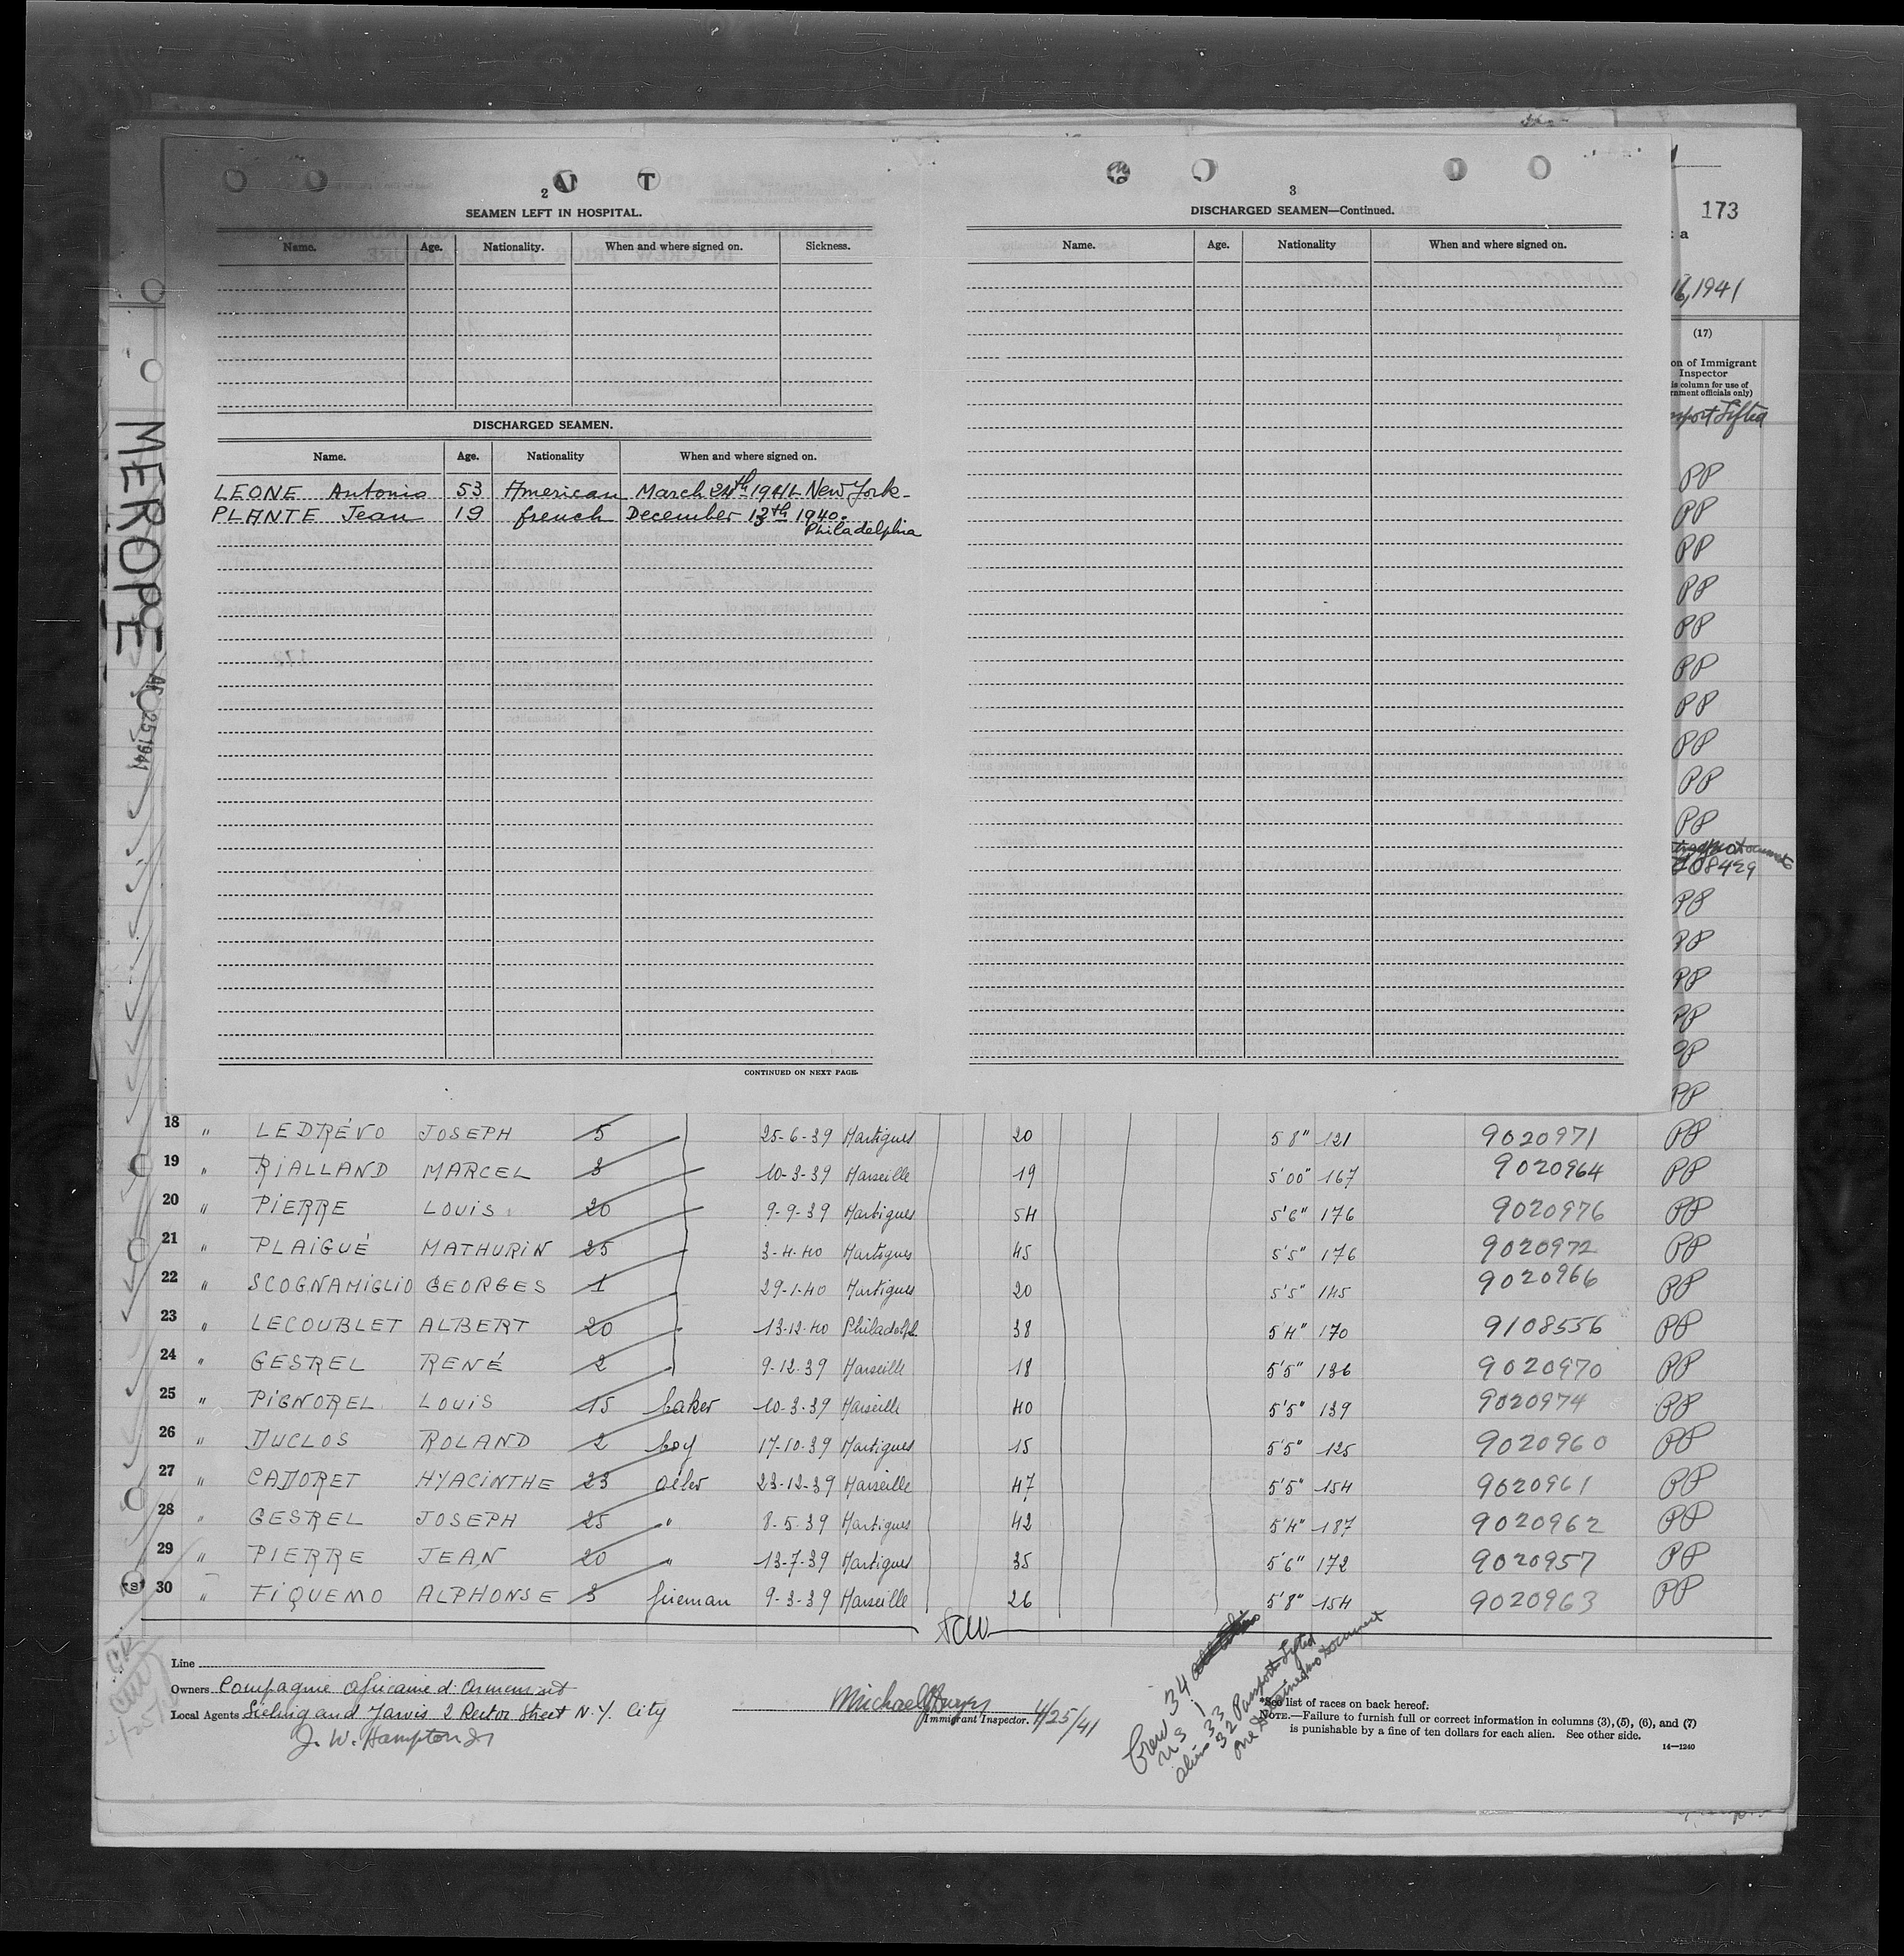 2
SEAMEN LEFT IN HOSPITAL.
Name. Age. Nationality. When and where signed on. Sickness.
DISCHARGED SEAMEN.
Name. Age. Nationality When and where signed on.
LEONE Antonio 53 American March 24th 1941 New York
PLANTE Jean 19 french December 13th 1940.
Philadelphia
CONTINUED ON NEXT PAGE.
3
DISCHARGED SEAMEN—Continued.
Name. Age. Nationality When and where signed on.
173
16, 1941
(17)
on of Immigrant
Inspector
is column for use of
rnment officials only)
PP
PP
PP
PP
PP
PP
PP
PP
PP
PP
108429
PP
PP
PP
PP
PP
PP
MEROPE
25 1941
18 " LEDRÉVO JOSEPH 5 25-6-39 Martigues 20 5 8" 121 9020971 PP
19 " RIALLAND MARCEL 3 10-3-39 Marseille 19 5'00" 167 9020964 PP
20 " PIERRE LOUIS 20 9-9-39 Martigues 54 5'6" 176 9020976 PP
21 " PLAIGUÉ MATHURIN 25 3-4-40 Martigues 45 5'5" 176 9020972 PP
22 " SCOGNAMIGLIO GEORGES 1 29-1-40 Martigues 20 5'5" 145 9020966 PP
23 " LECOUBLET ALBERT 20 13-12-40 Philadelph 38 5'4" 170 9108556 PP
24 " GESREL RENÉ 2 9-12-39 Marseille 18 5'5" 136 9020970 PP
25 " PIGNOREL LOUIS 15 baker 10-3-39 Marseille 40 5'5" 139 9020974 PP
26 " DUCLOS ROLAND 2 boy 17-10-39 Martigues 15 5'5" 125 9020960 PP
27 " CADORET HYACINTHE 23 oiler 23-12-39 Marseille 47 5'5" 154 9020961 PP
28 " GESREL JOSEPH 25 " 8-5-39 Martigues 42 5'4" 187 9020962 PP
29 " PIERRE JEAN 20 " 13-7-39 Martigues 35 5'6" 172 9020957 PP
30 " FIQUEMO ALPHONSE 3 fireman 9-3-39 Marseille 26 5'8" 154 9020963 PP
Line
Owners Compagnie Africaine d'Armement
Local Agents and Jarvis 2 Rector Street N.Y. City
J. W. Hampton Jr
Immigrant Inspector. 4/25/41
Crew 34
U S 1
aliens 33
32 Passports Lifted
one Detained no Document
*See list of races on back hereof.
NOTE.—Failure to furnish full or correct information in columns (3), (5), (6), and (7)
is punishable by a fine of ten dollars for each alien. See other side.
14—1240